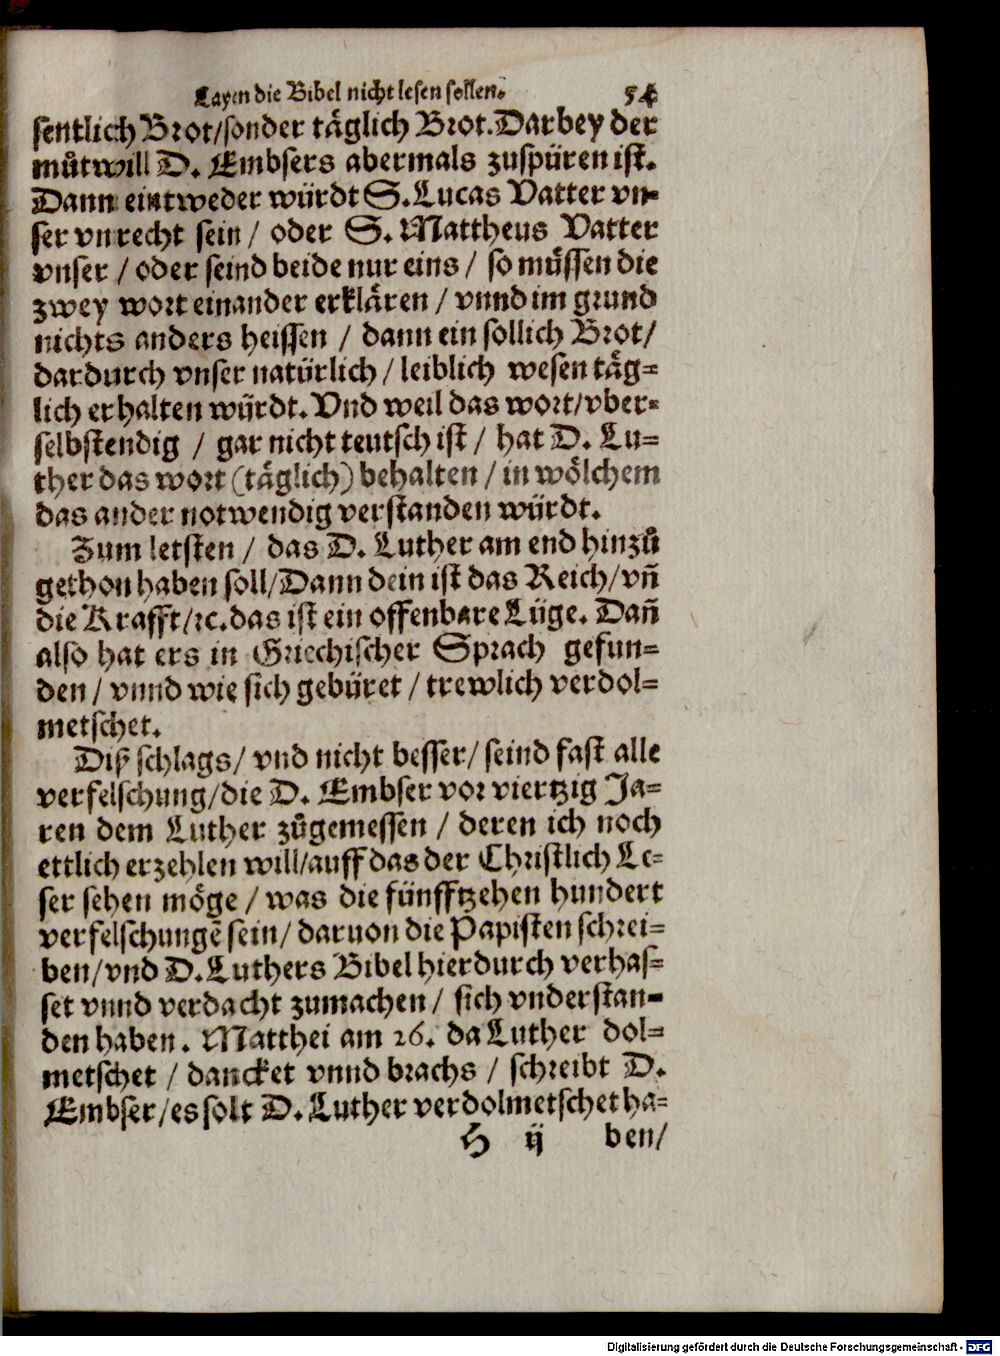 Layen die Bibel nicht lesen sollen. 54
sentlich Brot/sonder täglich Brot. Darbey der
můtwill D. Embsers abermals zuspüren ist.
Dann eintweder würdt S. Lucas Vatter vn-
ser vnrecht sein / oder S. Mattheus Vatter
vnser / oder seind beide nur eins / so müssen die
zwey wort einander erklären / vnnd im grund
nichts anders heissen / dann ein sollich Brot/
dardurch vnser natürlich / leiblich wesen täg-
lich erhalten würdt. Vnd weil das wort/vber-
selbstendig / gar nicht teutsch ist / hat D. Lu-
ther das wort (täglich) behalten / in wölchem
das ander notwendig verstanden würdt.
Zum letsten / das D. Luther am end hinzů
gethon haben soll/Dann dein ist das Reich/vñ
die Krafft/ꝛc. das ist ein offenbare Lüge. Dañ
also hat ers in Griechischer Sprach gefun-
den / vnnd wie sich gebüret / trewlich verdol-
metschet.
Diß schlags/ vnd nicht besser/ seind fast alle
verfelschung/die D. Embser vor viertzig Ja-
ren dem Luther zůgemessen / deren ich noch
ettlich erzehlen will/auff das der Christlich Le-
ser sehen möge / was die fünfftzehen hundert
verfelschungẽ sein/ daruon die Papisten schrei-
ben/vnd D. Luthers Bibel hierdurch verhas-
set vnnd verdacht zumachen/ sich vnderstan-
den haben. Matthei am 26. da Luther dol-
metschet / dancket vnnd brachs / schreibt D.
Embser/es solt D. Luther verdolmetschet ha-
H ij ben/
Digitalisierung gefördert durch die Deutsche Forschungsgemeinschaft - DFG